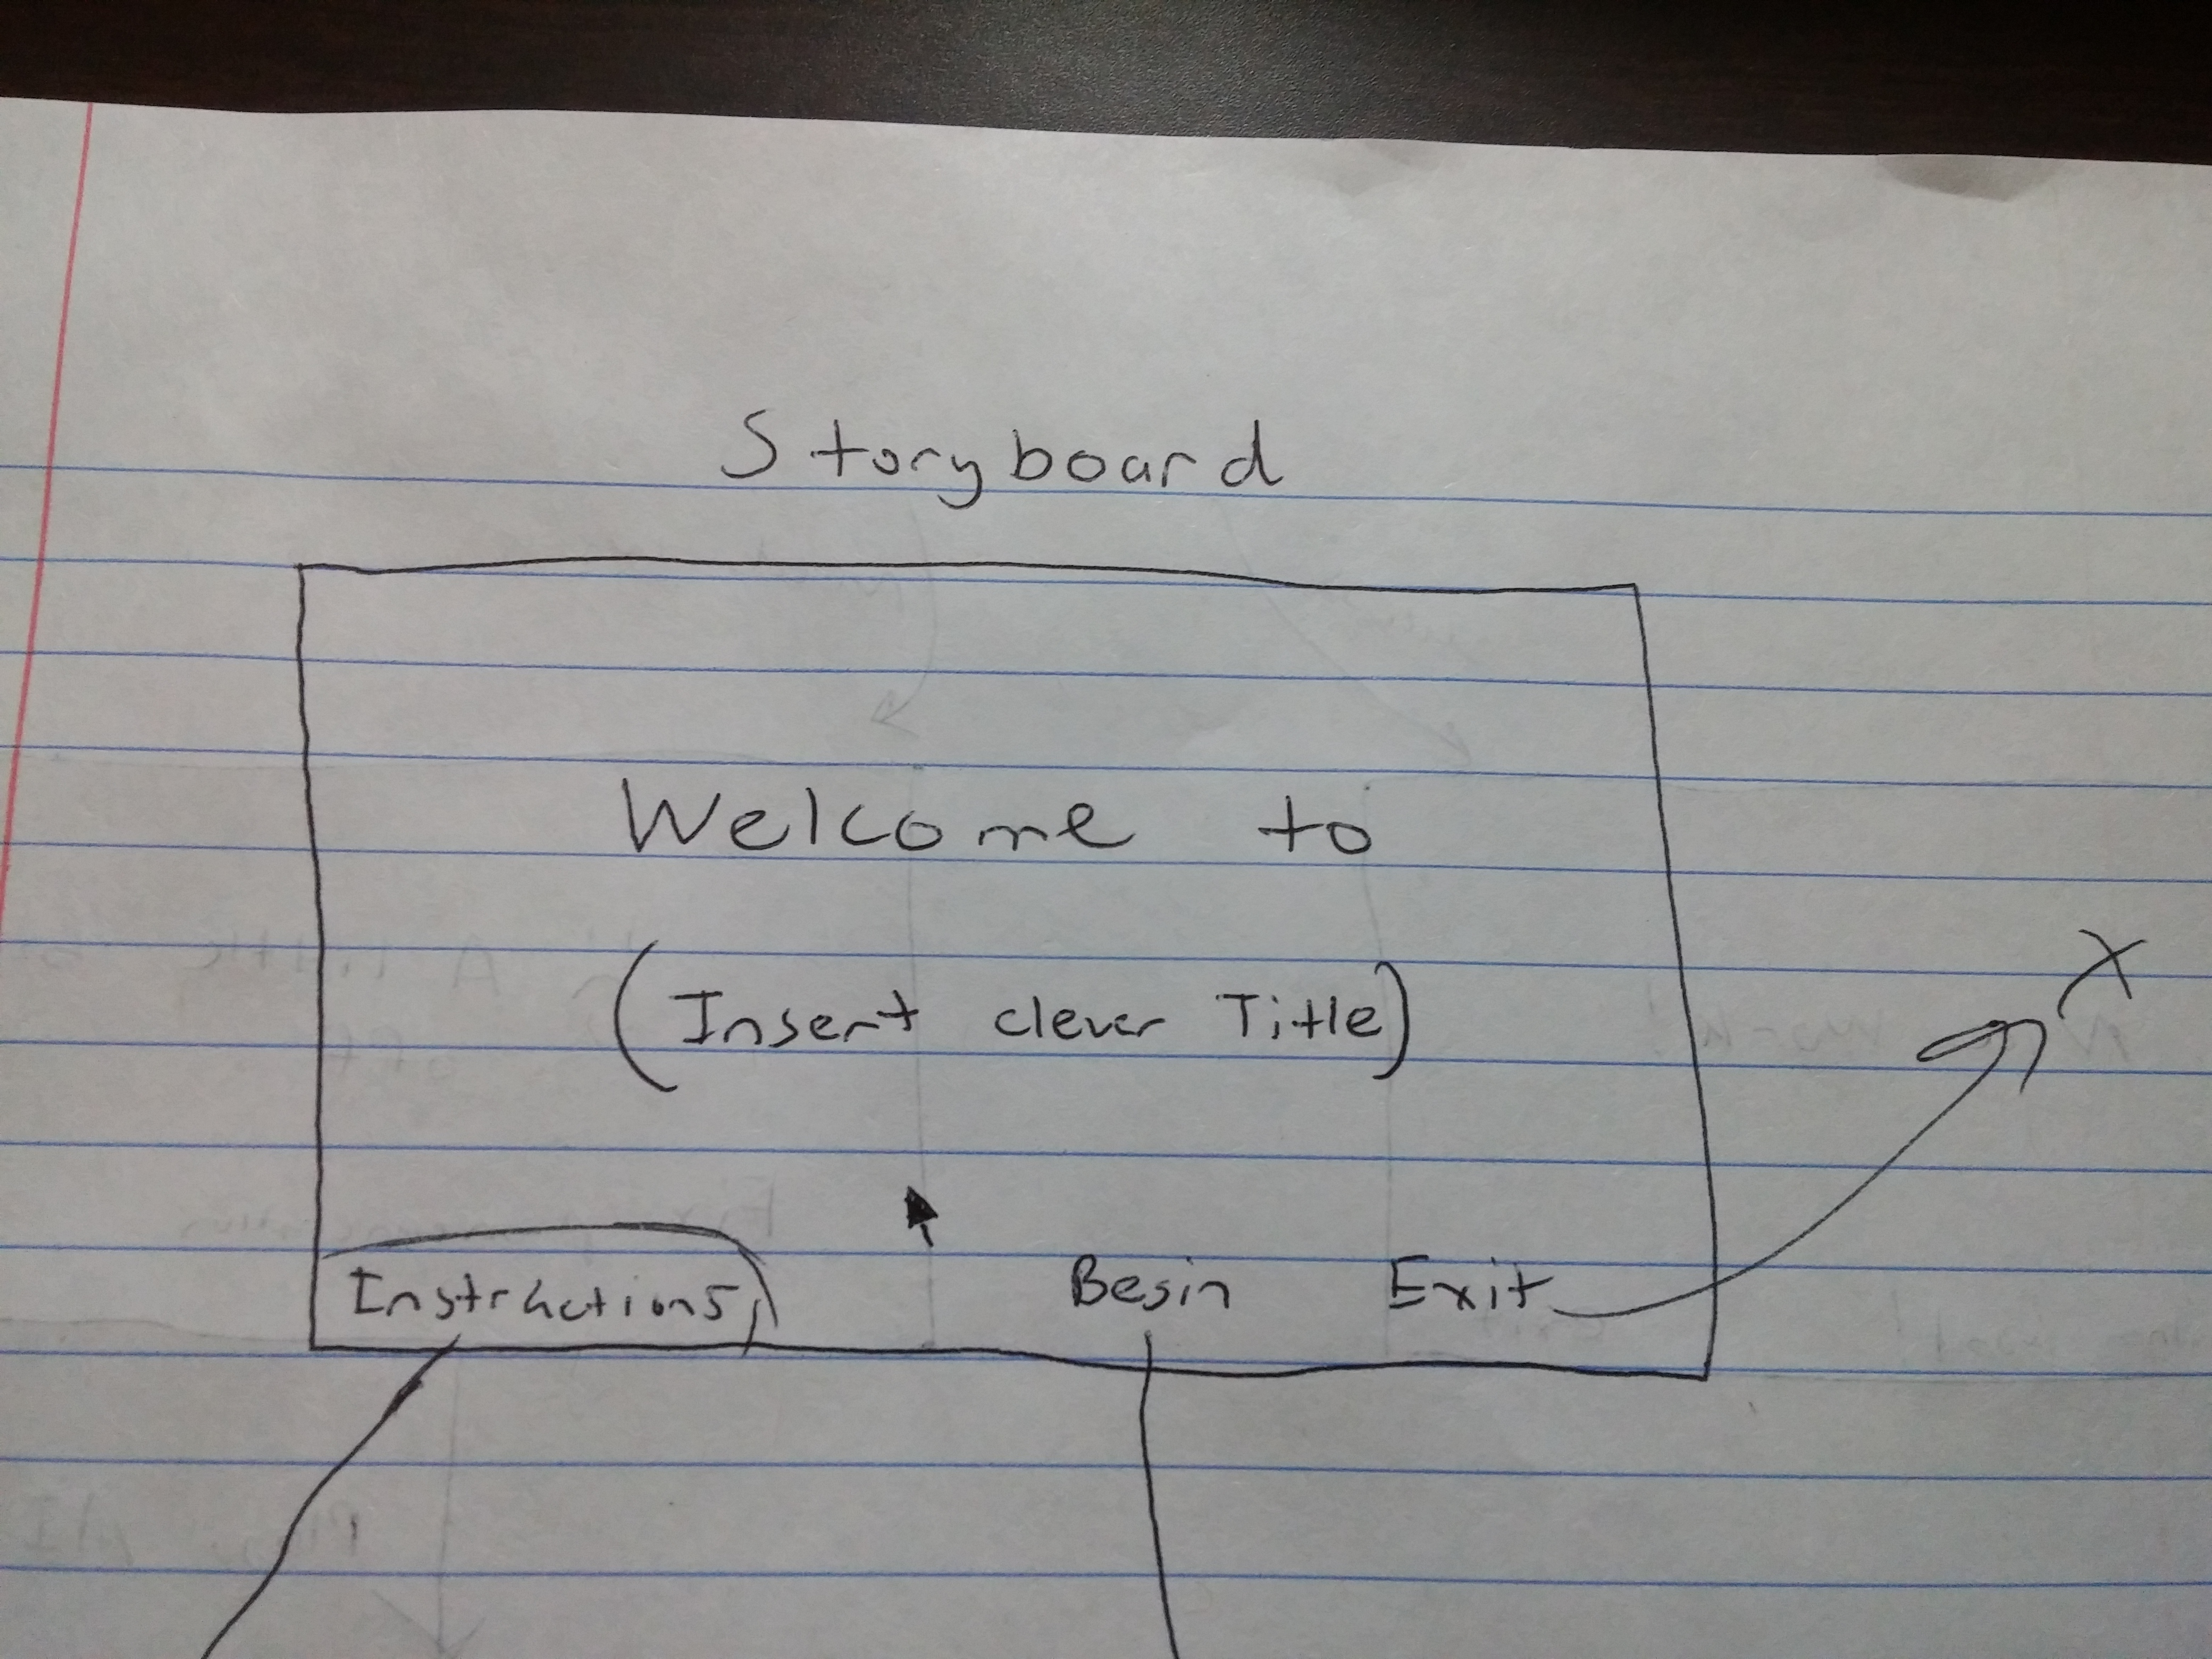 Storyboard
Welcome to
(Insert clever Title)
Instructions Begin Exit
X